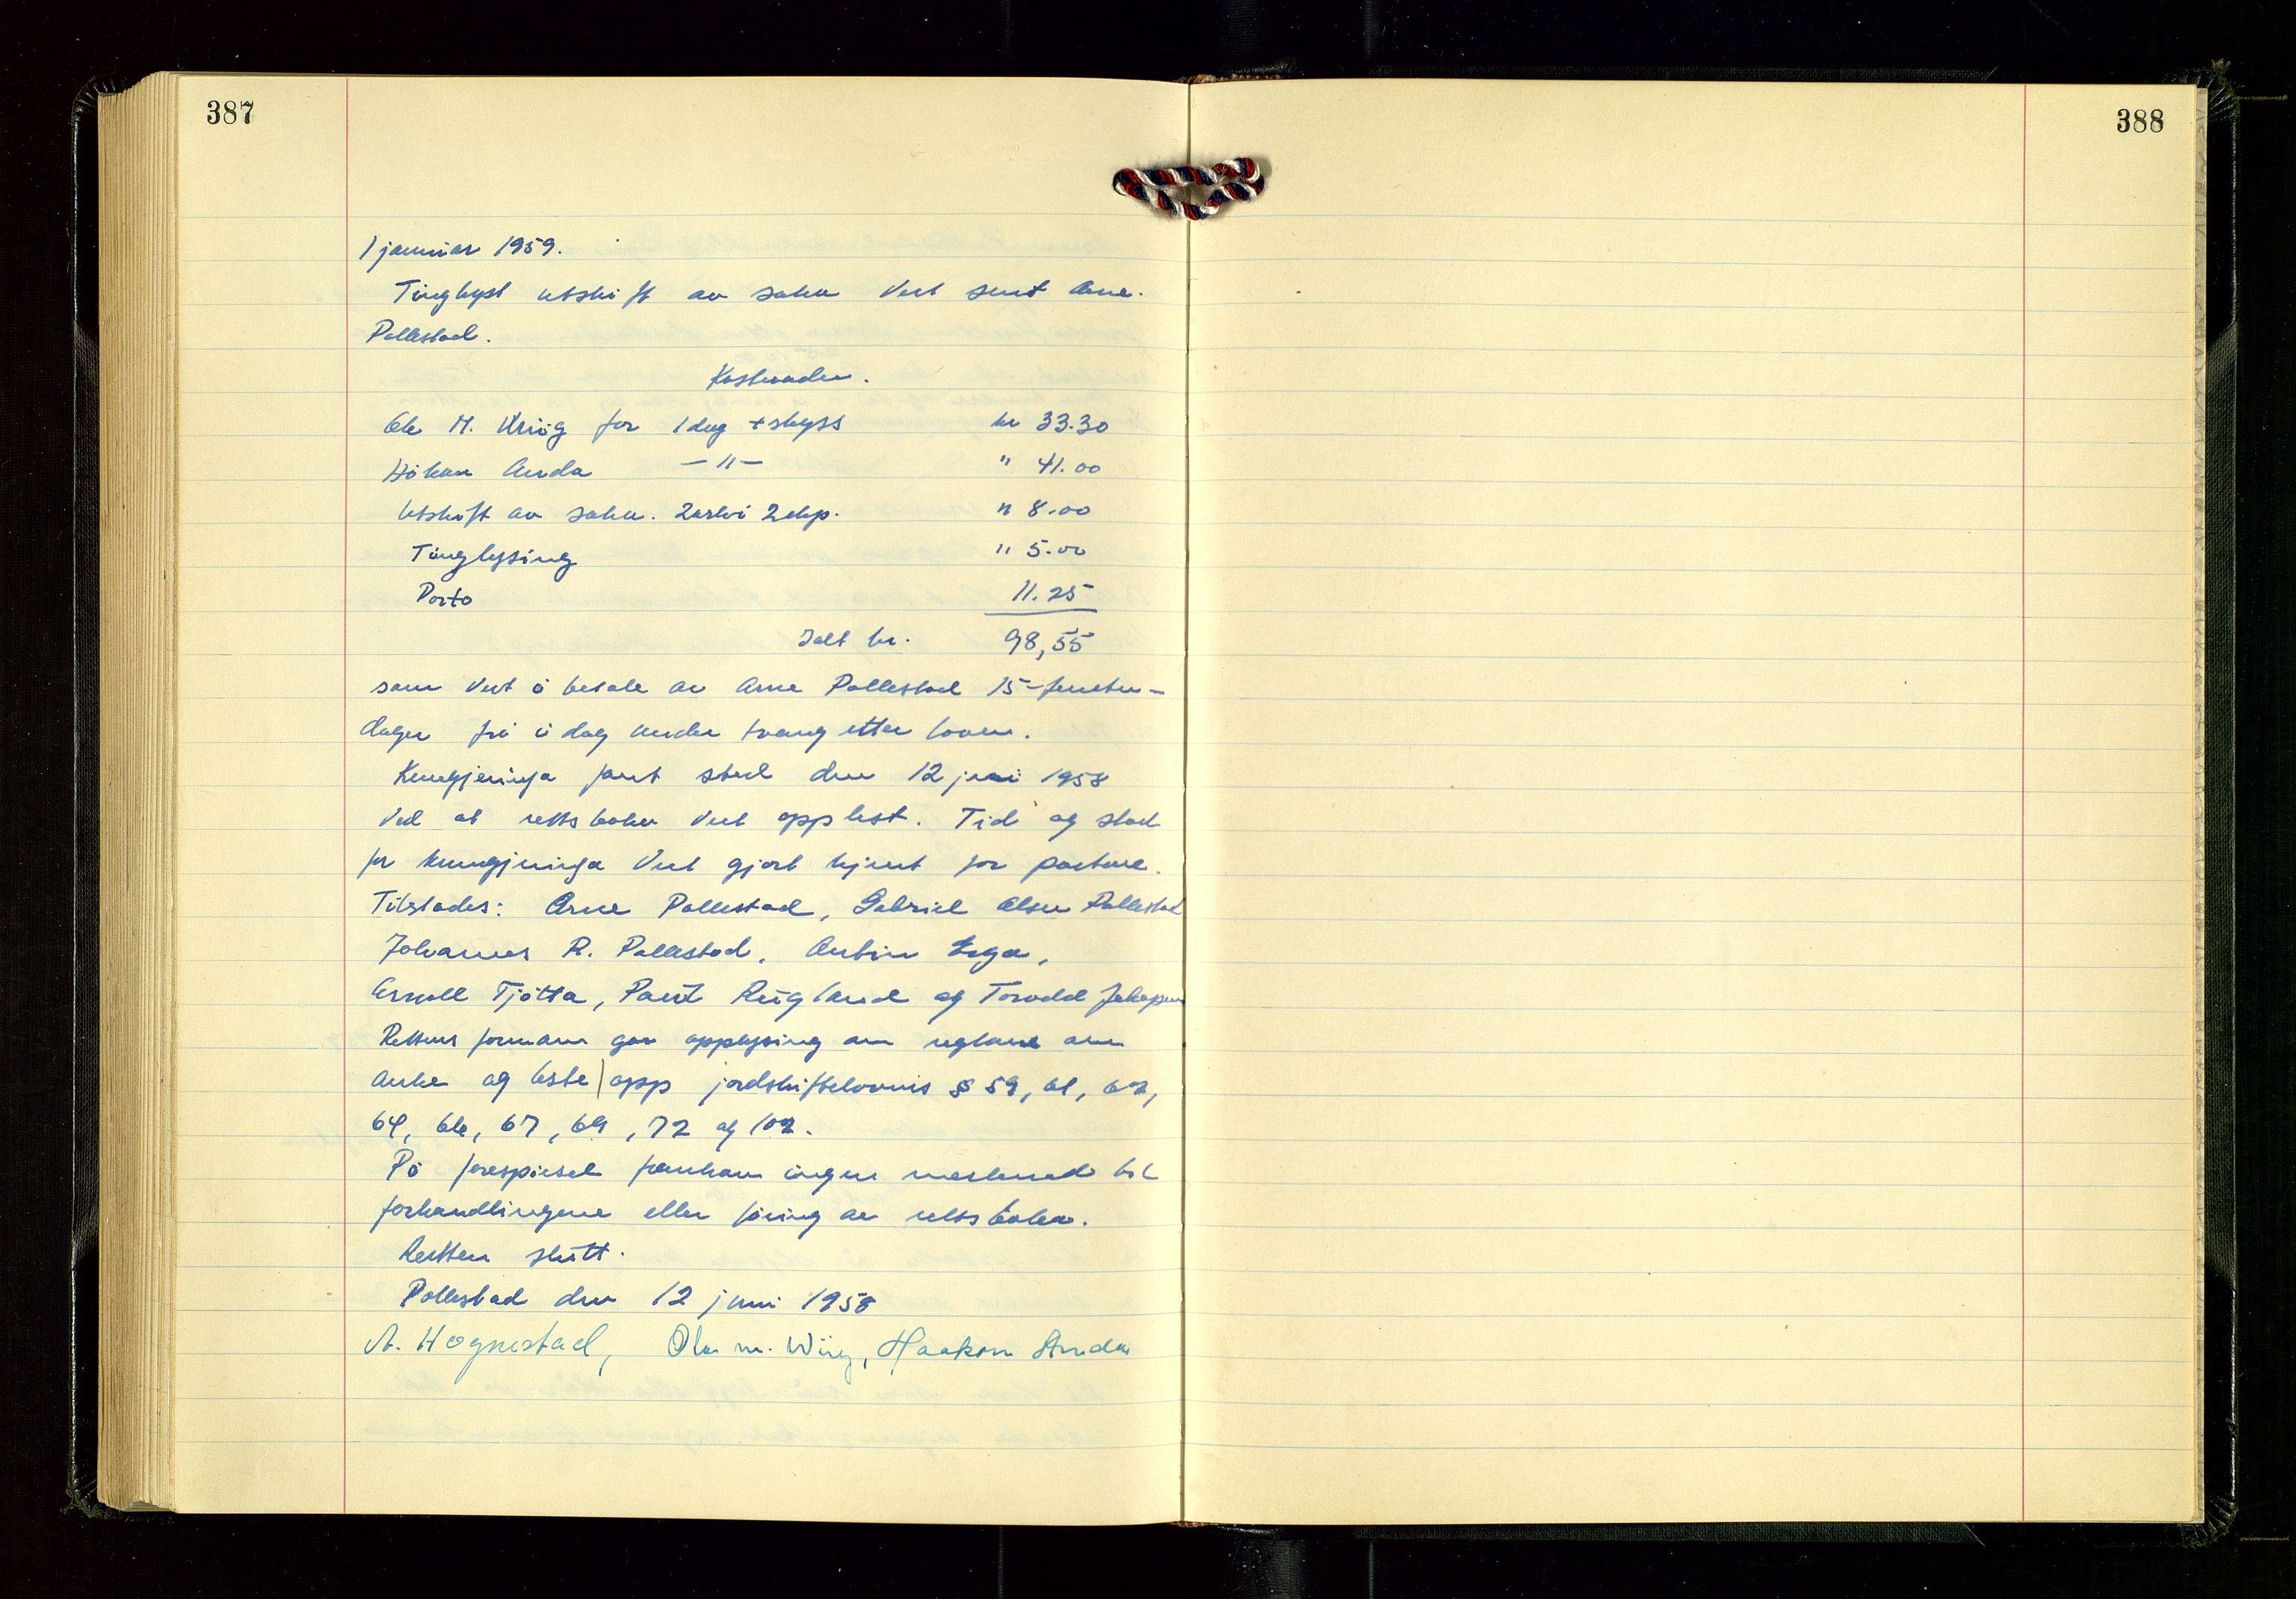 387
388
1 januar 1959.
Tinglyst utskift av saka vert sent Arne
Pollestad.
Kostnader.
Ole M. Wiig for 1 dag + skyss kr 33.30
Håkon Anda —"— " 41.00
Utskift av saka. 2 arki 2 eksp. " 8.00
Tinglysing " 5.00
Porto 11.25
Ialt kr. 98,55
som vert å betale av Arne Pollestad 15-femten-
dager frå i dag under tvang etter loven.
Kunngjeringa fant sted den 12 juni 1958
ved at rettsboka vert opplest. Tid og stad
for kunngjeringa vert gjort kjent for partane.
Tilstades: Arne Pollestad, Gabriel Olsen Pollestad
Johannes R. Pollestad, Erga,
Tjøtta, Paul Rugland og Torvald Jakopsen
Rettens formann gav opplysing om reglane om
anke og leste opp jordskiftelovens § 59, 61, 62,
64, 66, 67, 69, 72 og 102.
På forespørsel framkom ingen merknad til
forhandlingene eller føring av rettsboka.
Retten slutt.
Pollestad den 12 juni 1958
A. Hognestad, Ola M. Wiig, Haakon Anda